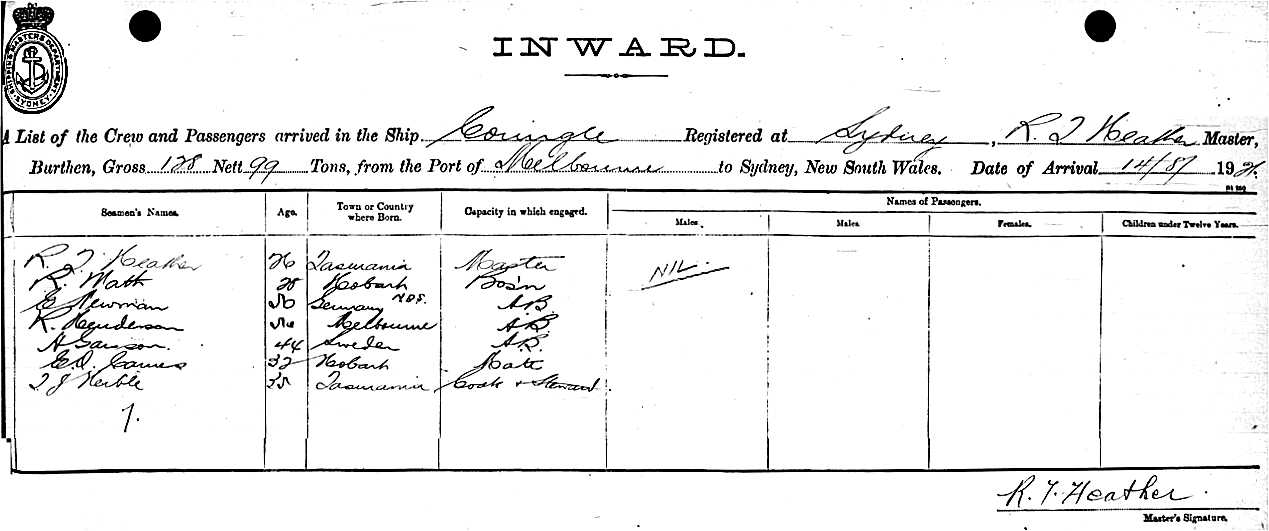 SHIPPING MASTER'S DEPARTMENT SYDNEY
INWARD.
A List of the Crew and Passengers arrived in the Ship. Coringle Registered at Sydney, R. T Heather Master,
Burthen, Gross 128 Nett 99 Tons, from the Port of Melbourne to Sydney, New South Wales. Date of Arrival 14/8/ 192
Seamen's Names. Age. Town or Country where Born. Capacity in which engaged. Names of Passengers.
Males. Males. Females. Children under Twelve Years.
R. T Heather Tasmania Master NIL.
R. Hobart Bos'n
E Newman Germany A.B
R. Henderson Melbourne A.B.
H 44 Sweden A.B.
E.D. James 32 Hobart Mate
T J Kerble Tasmania Cook & Steward
7.
R. T. Heather.
Master's Signature.